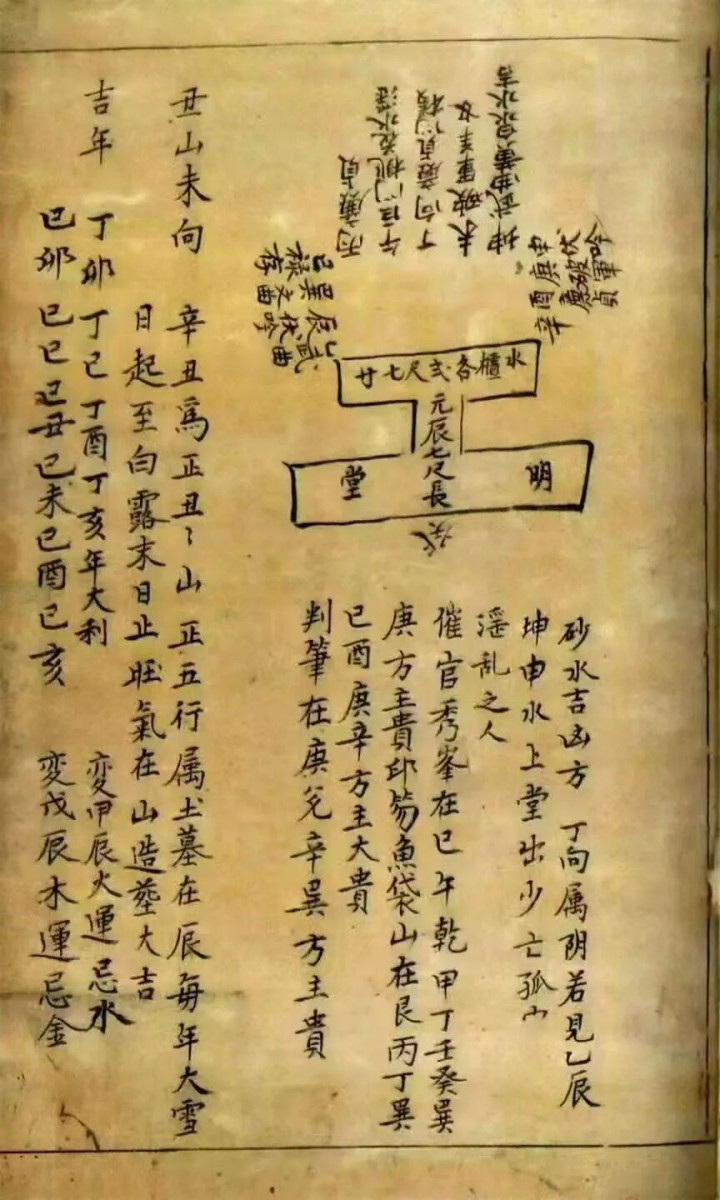 坤武曲黄泉水吉
未破軍羊刃
丁向廉貞
午巨門桃花水淫
丙廉貞
水櫃各弍尺七廿
元辰七尺長
明堂
砂水吉凶方 丁向属阴若見乙辰
坤申水上堂出少亡孤
滛乱之人
催官秀峯在巳午乾甲丁壬癸巽
庚方主貴印笏魚袋山在艮丙丁巽
巳酉庚辛方主大貴
判筆在庚兌辛巽方主貴
丑山未向 辛丑爲正丑〻山正五行属土墓在辰每年大雪
日起至白露末日止旺氣在山造塟大吉
吉年 丁卯丁巳丁酉丁亥年大利 变甲辰火運忌水
己卯己巳己丑己未己酉己亥 变戊辰木運忌金